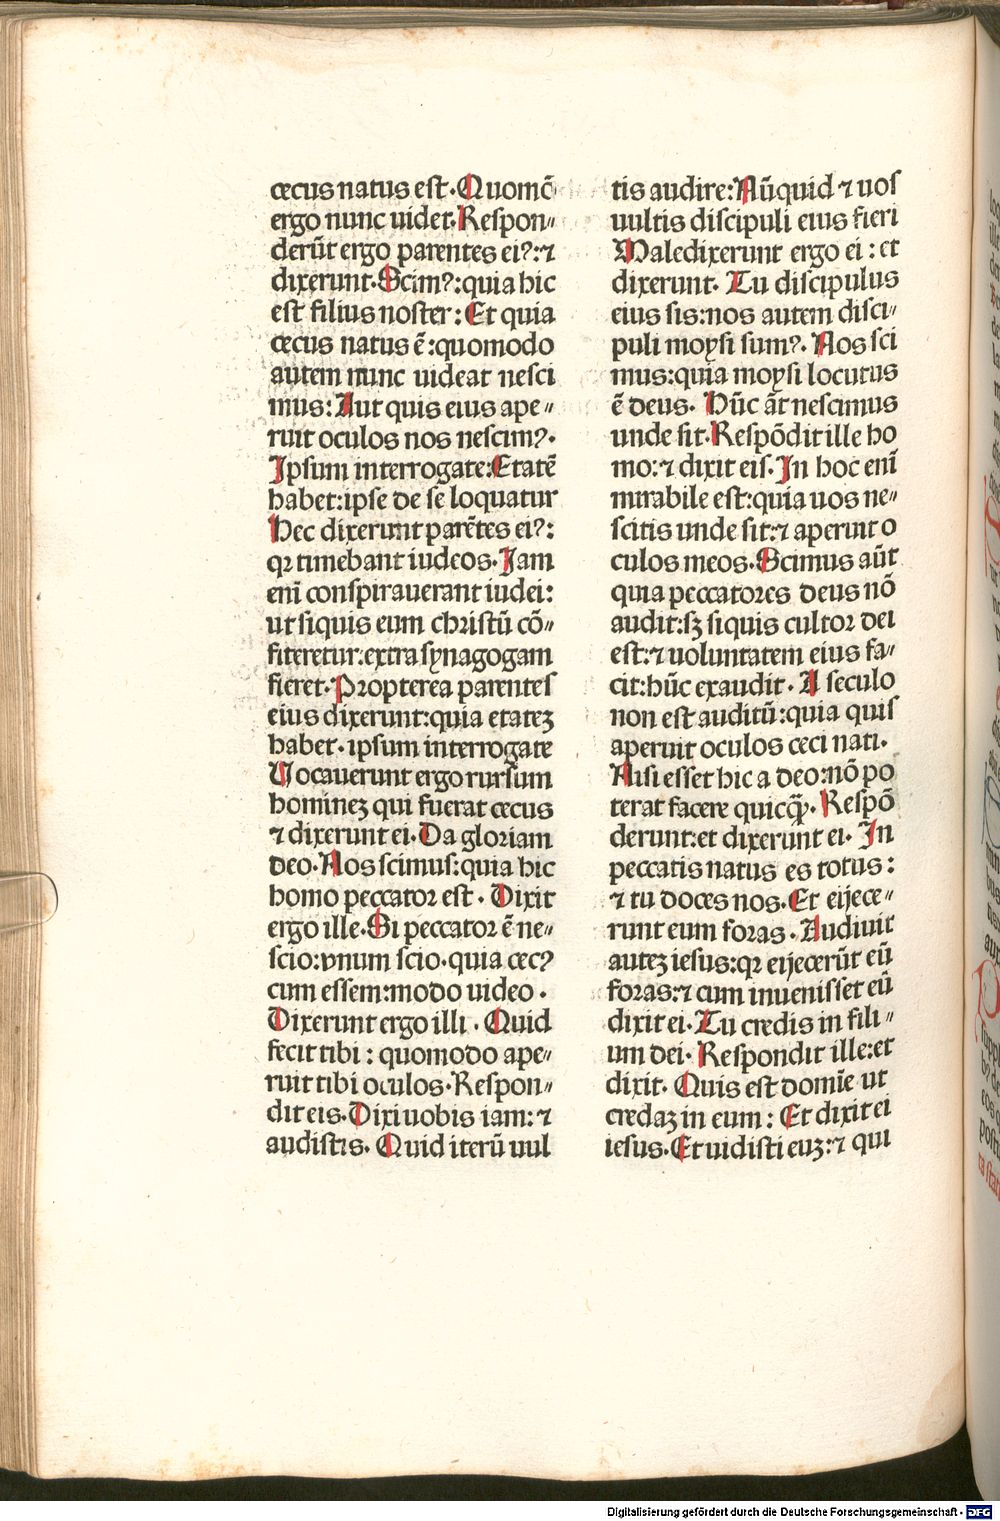 cecus natus est. Quomō
ergo nunc uidet. Respon⸗
derūt ergo parentes eiꝰ: ⁊
dixerunt. Scimꝰ: quia hic
est filius noster: Et quia
cecus natus ē: quomodo
autem nunc uideat nesci
mus: Aut quis eius ape⸗
ruit oculos nos nescimꝰ.
Ipsum interrogate: Etatē
habet: ipse de se loquatur
Hec dixerunt parētes eiꝰ:
qꝛ timebant iudeos. Jam
enī conspirauerant iudei:
ut siquis eum christū cō⸗
fiteretur: extra synagogam
fieret. Propterea parentes
eius dixerunt: quia etateꝫ
habet. ipsum interrogate
Vocauerunt ergo rursum
homineꝫ qui fuerat cecus
⁊ dixerunt ei. Da gloriam
deo. Nos scimus: quia hic
homo peccator est. Dixit
ergo ille. Si peccator ē ne⸗
scio: vnum scio. quia cecꝰ
cum essem: modo uideo.
Dixerunt ergo illi. Quid
fecit tibi: quomodo ape⸗
ruit tibi oculos. Respon⸗
dit eis. Dixi uobis iam: ⁊
audistis. Quid iterū uul
tis audire: Nūquid ⁊ uos
uultis discipuli eius fieri
Maledixerunt ergo ei: et
dixerunt. Tu discipulus
eius sis: nos autem disci⸗
puli moysi sumꝰ. Nos sci
mus: quia moysi locutus
ē deus. Hūc āt nescimus
unde sit. Respōdit ille ho
mo: ⁊ dixit eis. In hoc enī
mirabile est: quia uos ne⸗
scitis unde sit: ⁊ aperuit o
culos meos. Scimus aūt
quia peccatores deus nō
audit: sꝫ siquis cultor dei
est: ⁊ uoluntatem eius fa⸗
cit: hūc exaudit. A seculo
non est auditū: quia quis
aperuit oculos ceci nati.
Nisi esset hic a deo: nō po
terat facere quicꝙ̄. Respō
derunt: et dixerunt ei. In
peccatis natus es totus:
⁊ tu doces nos. Et eijece⸗
runt eum foras. Audiuit
auteꝫ iesus: qꝛ eijecerūt eū
foras: ⁊ cum inuenisset eū
dixit ei. Tu credis in fili⸗
um dei. Respondit ille: et
dixit. Quis est domīe ut
credaꝫ in eum: Et dixit ei
iesus. Et uidisti euꝫ: ⁊ qui
Digitalisierung gefördert durch die Deutsche Forschungsgemeinschaft - DFG